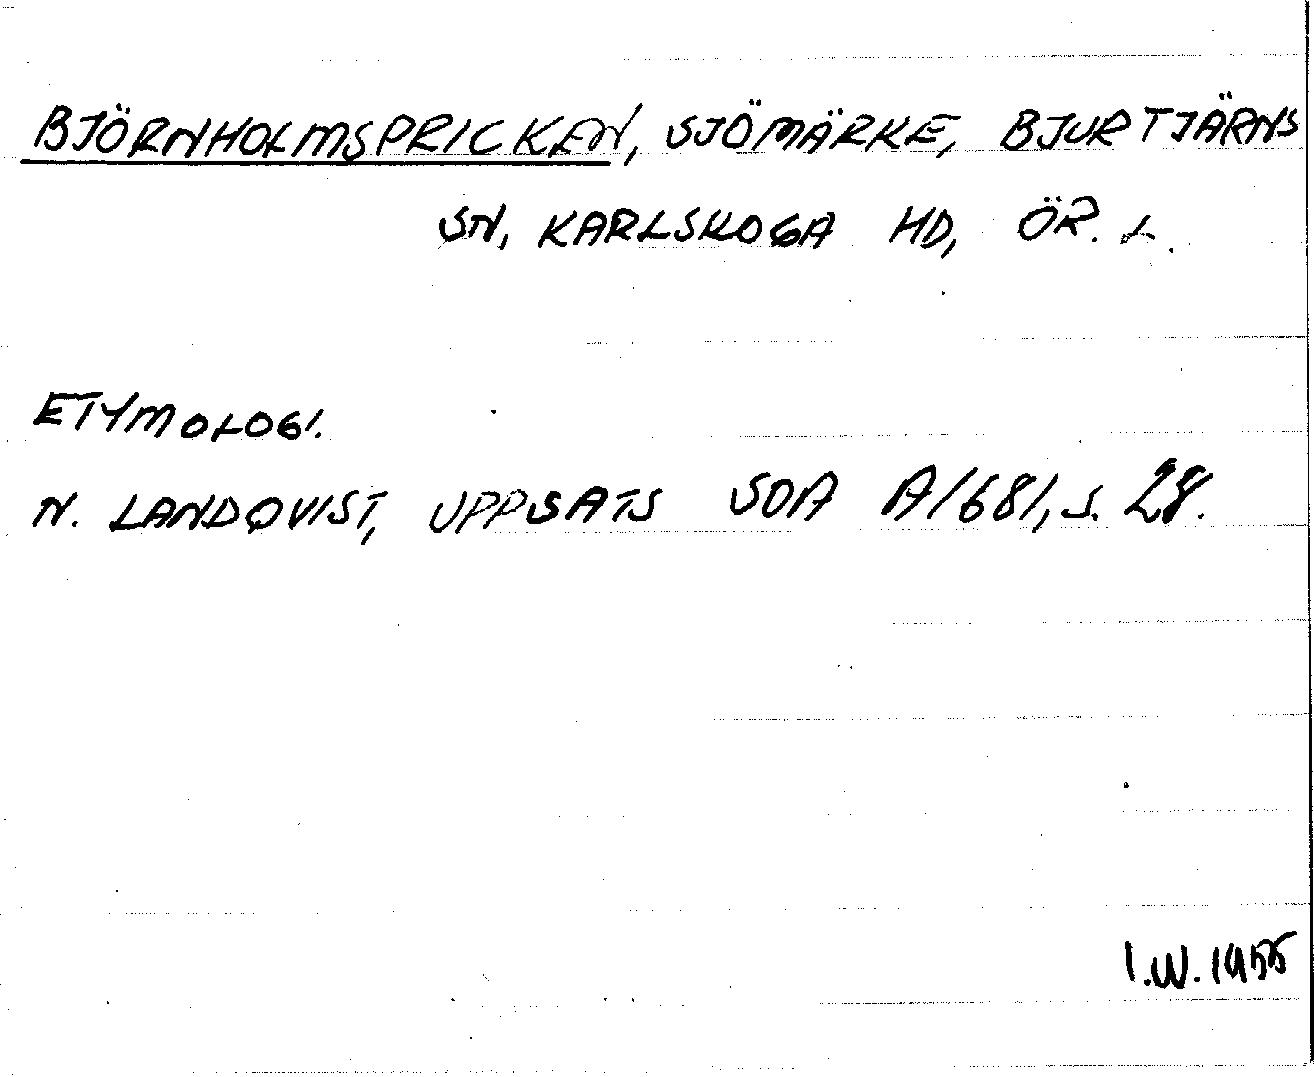 BJÖRNHOLMSPRICKEN, SJÖMÄRKE, BJURTJÄRNS
SN, KARLSKOGA HD, ÖR. L.
ETYMOLOGI.
N. LANDQVIST, UPPSATS SOA A/681, S. 28.
I.W. 1955